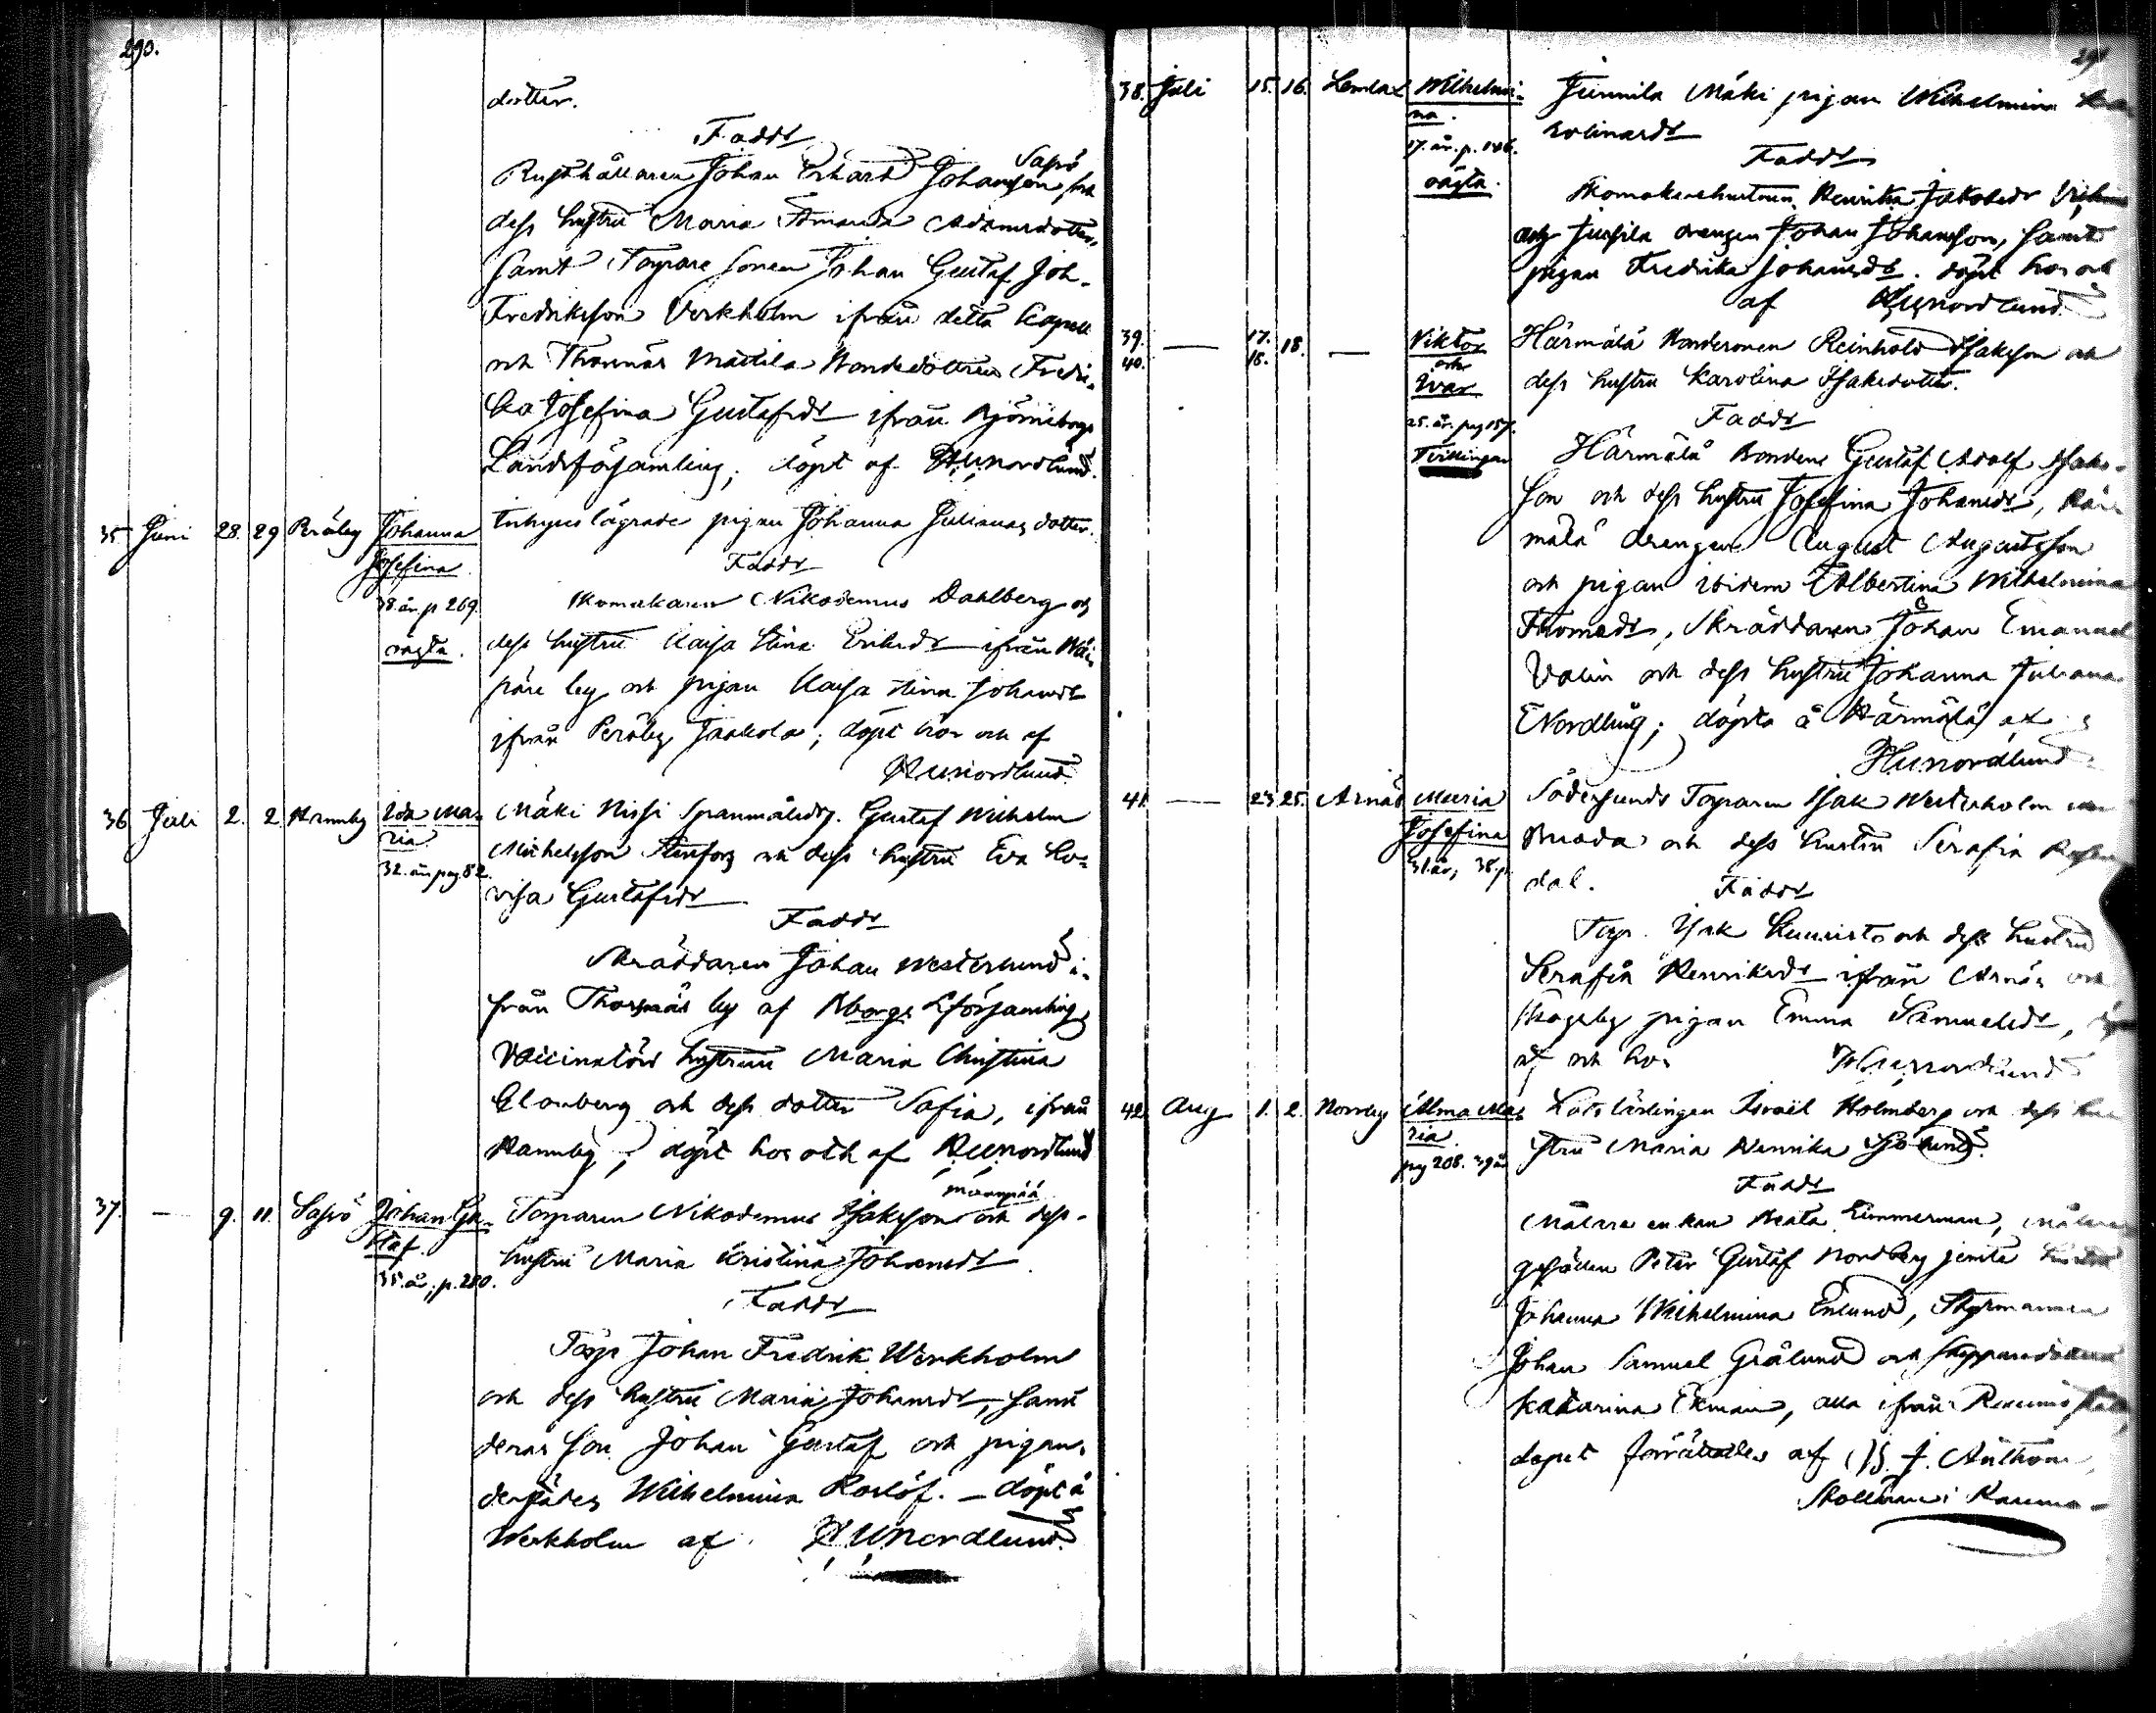 290.
dotter.
Faddr
Rusthållaren Johan Erhard Johansson Sapö och
dess hustru Maria Amanda Adamsdotter,
samt Torpare sonen Johan Gustaf Joh.
Fredriksson Verkholm ifrån detta Kapell
och Thornäs Mattila Bondedottren Fredri-
ka Josefina Gustafsdr ifrån Björneborgs
Landsförsamling; döpt af HUNordlund.
35 Juni 28. 29 Peräby Johanna Josefina 38. år. p 269. oägta.
pigan Johanna Juliana dotter.
Faddr
Skomakaren Nikodemus Dahlberg och
dess hustru Kaisa Stina Eriksdr ifrån
by och pigan Kaisa Stina Johansdr
ifrån Peräby Jaakola; döpt hos och af
HUNordlund.
36 Juli 2. 2 Hannby Ida Maria 32. år pag. 82.
Mäki Nissi Gustaf Wilhelm
Michelsson och dess hustru Eva Lo-
visa Gustafsdr
Faddr
Skräddaren Johan Westerlund i-
från Thornäs by af Bborgs Lförsamling,
Vaccinatörs hustrun Maria Christina
Blomberg och dess dotter Sofia, ifrån
Hannby; döpt hos och af HUNordlund
37. — 9. 11. Sapö Johan Gustaf. 35. år; p. 280.
Torparen Nikodemus Isaksson Maanpää och dess
hustru Maria Kristina Johansdr
Faddr
Torp Johan Fredrik Werkholm
och dess hustru Maria Johansdr, samt
deras son Johan Gustaf och pigan
Wilhelmina Roslöf. — döpt å
Werkholm af HUNordlund.
38. Juli 15. 16. Lemlax Wilhelmina. 17. år. p. 146. oägta.
Junnila Mäki pigan Wilhelmina
Faddr
Skomakarehustrun Henrika Jakobsdr
och Jussila drengen Johan Johansson, samt
pigan Fredrika Johansdr. döpt hos och
af HUNordlund.
39. 40. — 17. 18. 18. — Viktor och Ivar 25. år. pag 157. Tvillingar
Härmälä Bondesonen Reinhold Isaksson och
dess hustru Karolina Isaksdotter.
Faddr
Härmälä Bonden Gustaf Adolf Isaks-
son och dess hustru Josefina Johansdr, Här-
mälä drengen August Augustsson
och pigan ibidem Albertina Wilhelmina
Thomasdr, Skräddaren Johan Emanuel
Valin och dess hustru Johanna Juliana
Nordling; döpta å Härmälä af
HUNordlund
41. — 23. 25. Arnäs Maria Josefina 31. år, 38. p.
Södersunds Torparen Isak Westerholm
och dess hustru Serafia
dal.
Faddr
Torp. Isak Kunnisto och dess hustru
Serafia Henriksdr ifrån Arnäs och
Skogsby pigan Emma Samuelsdr,
af och hos HUNordlund
42. Aug 1. 2. Norrby Alma Maria. pag 208. 39 år
Lotslärlingen Israël Holmberg och dess hu-
stru Maria Henrika Sjölund.
Faddr
Målare enkan Beata Zimmerman, Målare
gesällen Peter Gustaf Nordberg jemte hustru
Johanna Wilhelmina Enlund, Styrmannen
Johan Samuel Grälund och skeppsredottren
Katarina Ekman, alla ifrån Raumo stad,
dopet förrättades af G. J. Anthoni,
Skollärare i Raumo.